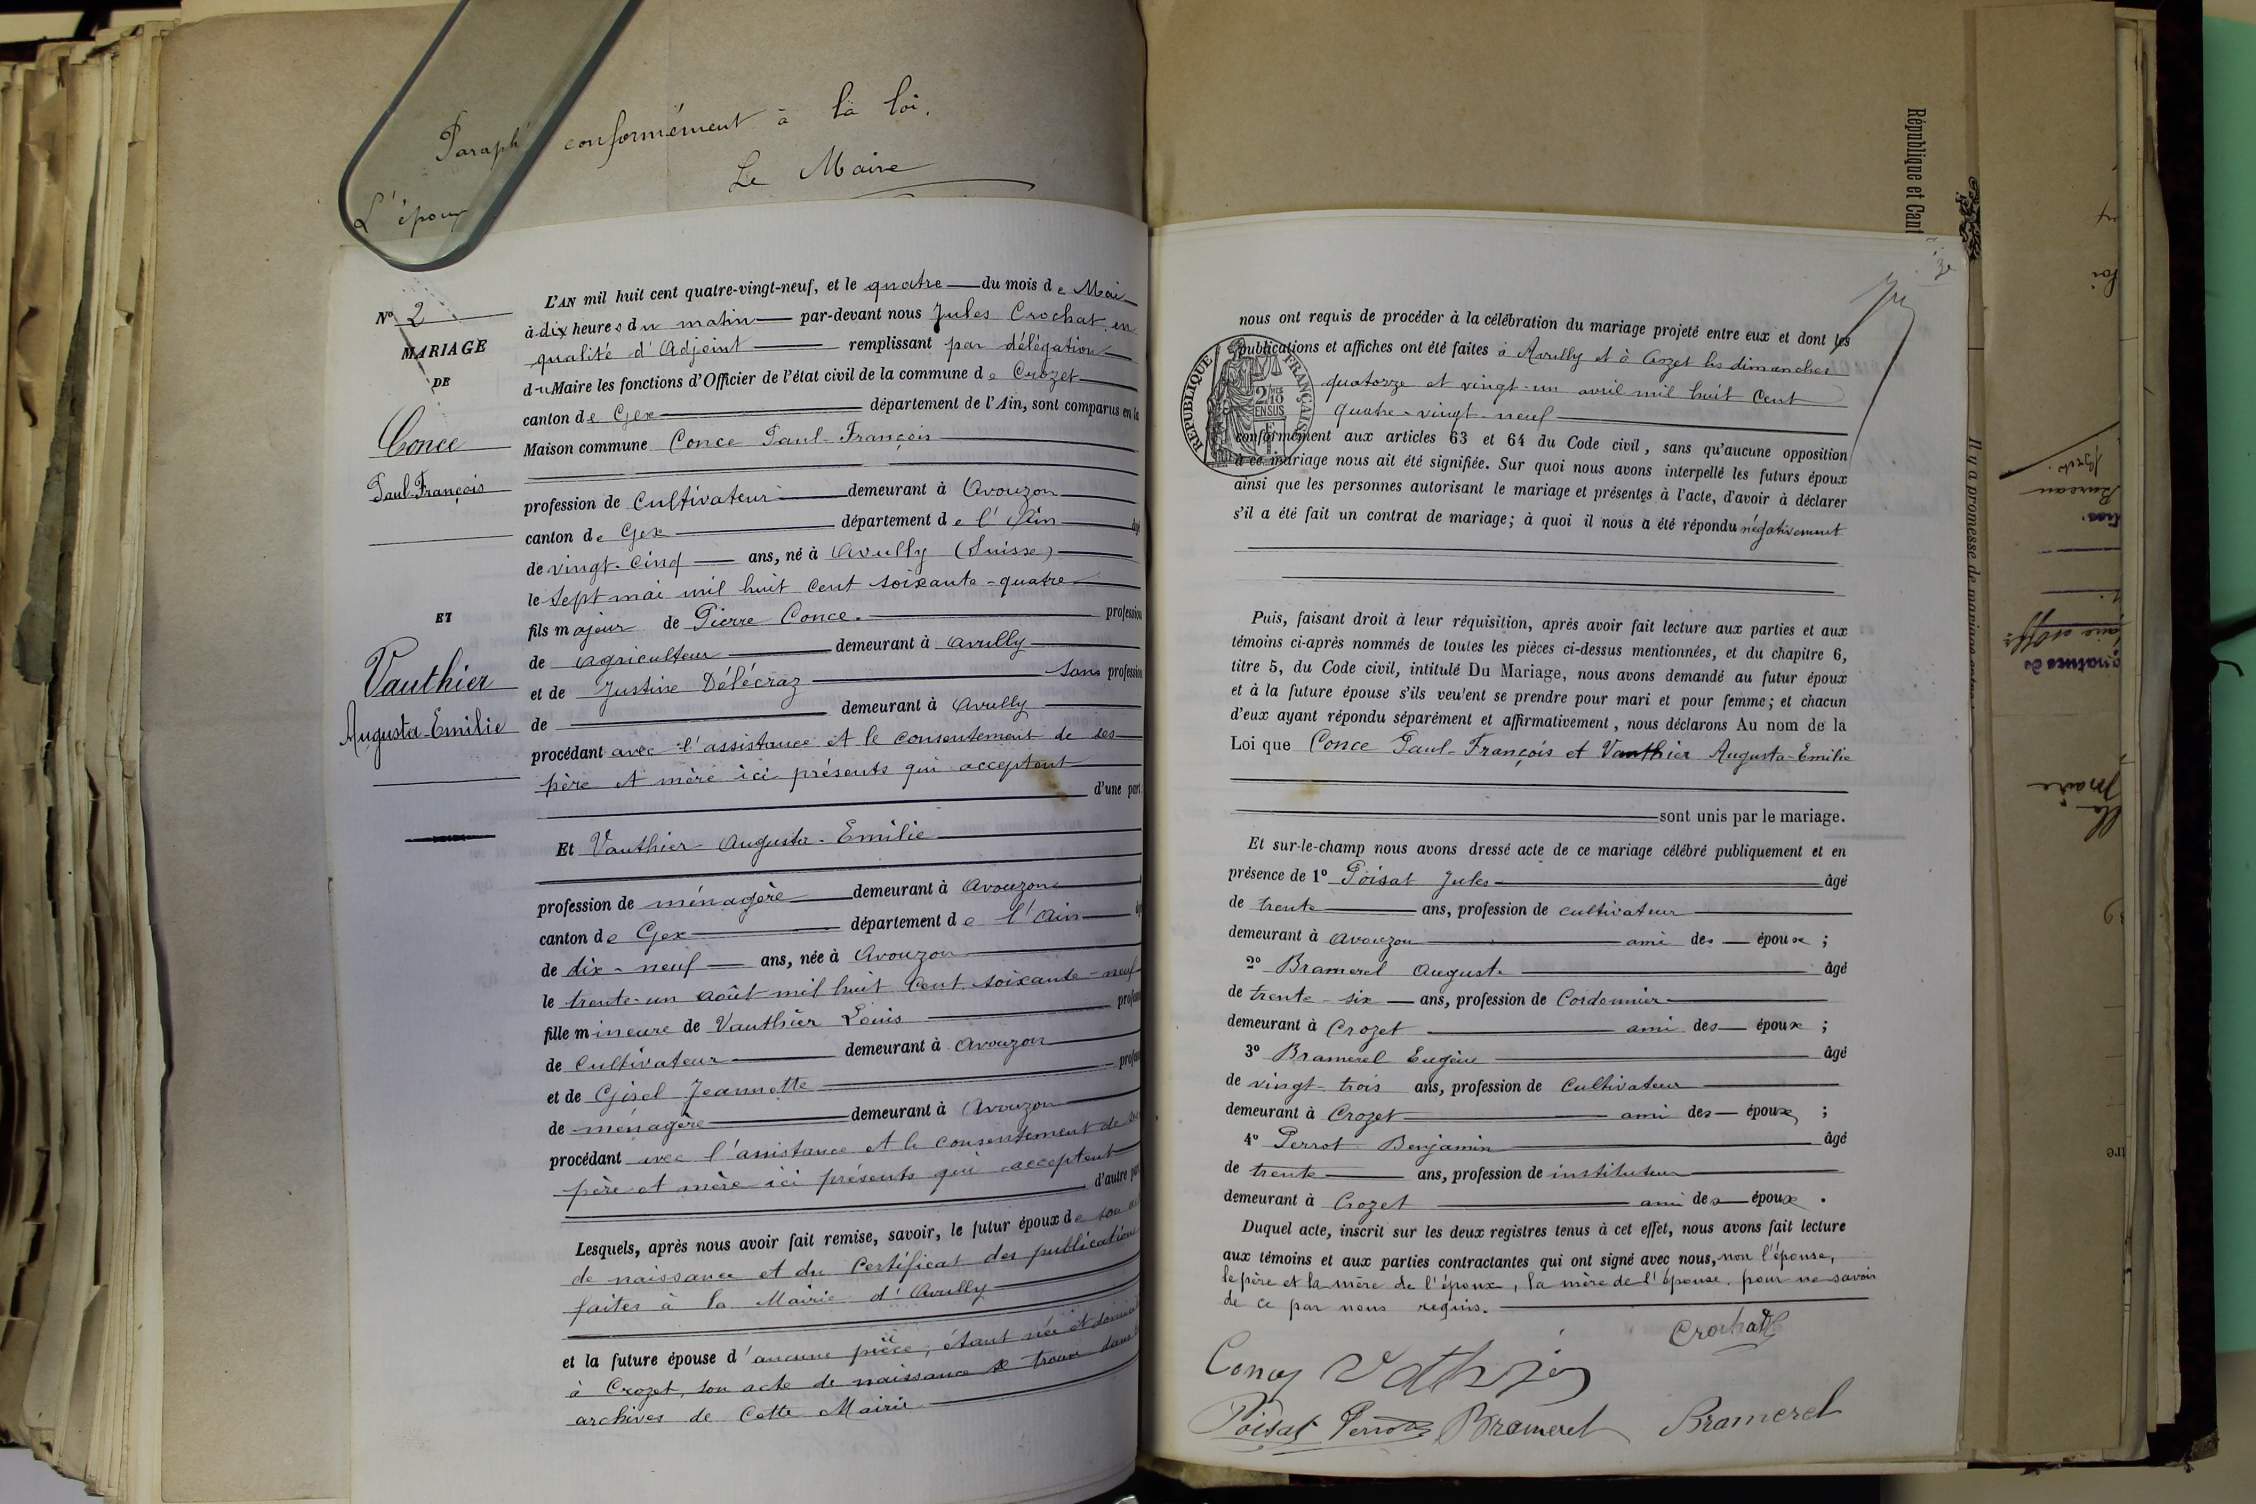 Paraphé conformément à la loi.
Le Maire
L'époux
N° 2
MARIAGE
DE
Conce
Paul-François
ET
Vauthier
Augusta-Emilie
L'AN mil huit cent quatre-vingt-neuf, et le quatre du mois de Mai
à dix heures du matin par-devant nous Jules Crochat en
qualité d'Adjoint remplissant par délégation
du Maire les fonctions d'Officier de l'état civil de la commune de Crozet
canton de Gex département de l'Ain, sont comparus en la
Maison commune Conce Paul-François
profession de Cultivateur demeurant à Avouzon
canton de Gex département de l'Ain âgé
de vingt-cinq ans, né à Avully (Suisse)
le sept mai mil huit cent soixante-quatre
fils majeur de Pierre Conce. profession
de agriculteur demeurant à Avully
et de Justine Délécraz sans profession
de demeurant à Avully
procédant avec l'assistance et le consentement de ses
père et mère ici présents qui acceptent
d'une part.
Et Vauthier Augusta-Emilie
profession de ménagère demeurant à Avouzon
canton de Gex département de l'Ain
de dix-neuf ans, née à Avouzon
le trente-un août mil huit cent soixante-neuf
fille mineure de Vauthier Louis
de Cultivateur demeurant à Avouzon
et de Girel Jeannette
de ménagère demeurant à Avouzon
procédant avec l'assistance et le consentement de ses
père et mère ici présents qui acceptent
d'autre part
Lesquels, après nous avoir fait remise, savoir, le futur époux de son
de naissance et du Certificat des publications
faites à la Mairie d'Avully
et la future épouse d'aucune pièce, étant née et
à Crozet, son acte de naissance se trouve dans
archives de Cette Mairie
République et Cant
nous ont requis de procéder à la célébration du mariage projeté entre eux et dont les
publications et affiches ont été faites à Avully et à Crozet les dimanches
quatorze et vingt-un avril mil huit Cent
quatre-vingt-neuf
RÉPUBLIQUE FRANÇAISE
conformément aux articles 63 et 64 du Code civil, sans qu'aucune opposition
à ce mariage nous ait été signifiée. Sur quoi nous avons interpellé les futurs époux
ainsi que les personnes autorisant le mariage et présentes à l'acte, d'avoir à déclarer
s'il a été fait un contrat de mariage; à quoi il nous a été répondu négativement
Puis, faisant droit à leur réquisition, après avoir fait lecture aux parties et aux
témoins ci-après nommés de toutes les pièces ci-dessus mentionnées, et du chapitre 6,
titre 5, du Code civil, intitulé Du Mariage, nous avons demandé au futur époux
et à la future épouse s'ils veulent se prendre pour mari et pour femme; et chacun
d'eux ayant répondu séparément et affirmativement, nous déclarons Au nom de la
Loi que Conce Paul-François et Vauthier Augusta-Emilie
sont unis par le mariage.
Et sur-le-champ nous avons dressé acte de ce mariage célébré publiquement et en
présence de 1° Poisat Jules âgé
de trente ans, profession de cultivateur
demeurant à Avouzon ami des époux ;
2° Bramerel Auguste âgé
de trente-six ans, profession de Cordonnier
demeurant à Crozet ami des époux ;
3° Bramerel Eugène âgé
de vingt-trois ans, profession de Cultivateur
demeurant à Crozet ami des époux ;
4° Perrot Benjamin âgé
de trente ans, profession de instituteur
demeurant à Crozet ami des époux .
Duquel acte, inscrit sur les deux registres tenus à cet effet, nous avons fait lecture
aux témoins et aux parties contractantes qui ont signé avec nous, non l'épouse,
le père et la mère de l'époux, la mère de l'épouse, pour ne savoir
de ce par nous requis.
Crochat
Conce
Poisat Perrot Bramerel Bramerel